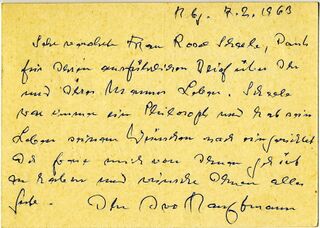 7.2.1963
Sehr verehrte Frau Rosa Schaefe, Dank
für Ihren ausführlichen Brief über Ihr
und Ihres Mannes Leben.
war immer ein Philosoph und hat sein
Leben seinen Wünschen nach eingerichtet
mich von Ihnen gehört
zu haben und wünsche Ihnen alles
Gute. Ihr